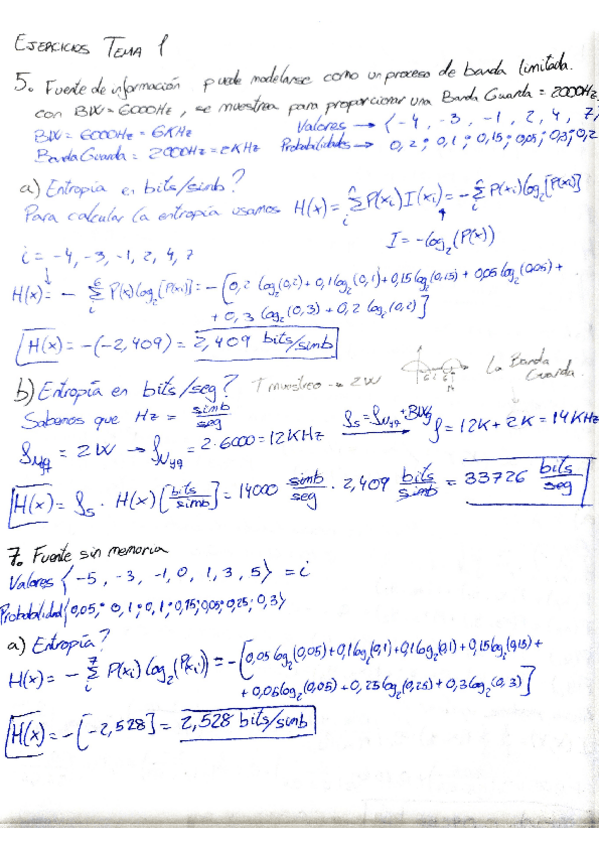 EJERCICIOS TEMA 1
5. Fuente de información puede modelarse como un proceso de banda limitada.
con BW = 6000Hz, se muestrea para proporcionar una Banda Guarda = 2000Hz.
BW = 6000Hz = 6KHz Valores → {-4, -3, -1, 2, 4, 7}
Banda Guarda = 2000Hz = 2KHz Probabilidades → 0,2; 0,1; 0,15; 0,05; 0,3; 0,2
a) Entropía en bits/simb?
Para calcular la entropía usamos H(x) = Σ P(xi) I(xi) = - Σ P(xi) log2 [P(xi)]
I = -log2 (P(x))
i = -4, -3, -1, 2, 4, 7
H(x) = - Σ P(x) log2 [P(xi)] = - [0,2 log2(0,2) + 0,1 log2(0,1) + 0,15 log2(0,15) + 0,05 log2(0,05) +
+ 0,3 log2(0,3) + 0,2 log2(0,2)]
H(x) = -(-2,409) = 2,409 bits/simb
b) Entropía en bits/seg? T muestreo → 2W La Banda Guarda.
Sabemos que Hz = simb/seg
fNyq = 2W → fNyq = 2·6000 = 12KHz fs = fNyq + BWg f = 12K + 2K = 14KHz
H(x) = fs · H(x) [bits/simb] = 14000 simb/seg · 2,409 bits/simb = 33726 bits/seg
7. Fuente sin memoria
Valores {-5, -3, -1, 0, 1, 3, 5} = i
Probabilidad {0,05; 0,1; 0,1; 0,15; 0,05; 0,25; 0,3}
a) Entropía?
H(x) = - Σ P(xi) log2 (P(xi)) = - [0,05 log2(0,05) + 0,1 log2(0,1) + 0,1 log2(0,1) + 0,15 log2(0,15) +
+ 0,05 log2(0,05) + 0,25 log2(0,25) + 0,3 log2(0,3)]
H(x) = -[-2,528] = 2,528 bits/simb